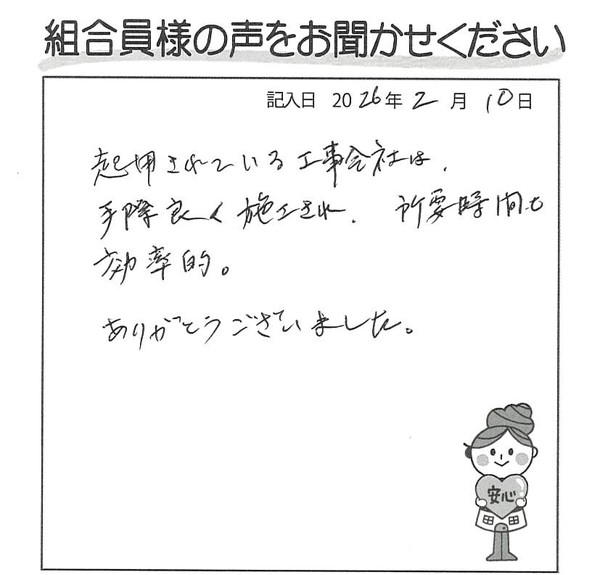 組合員様の声をお聞かせください
記入日 2026年2月10日
起用されている工事会社は、
手際良く施工され、所要時間も
効率的。
ありがとうございました。
安心